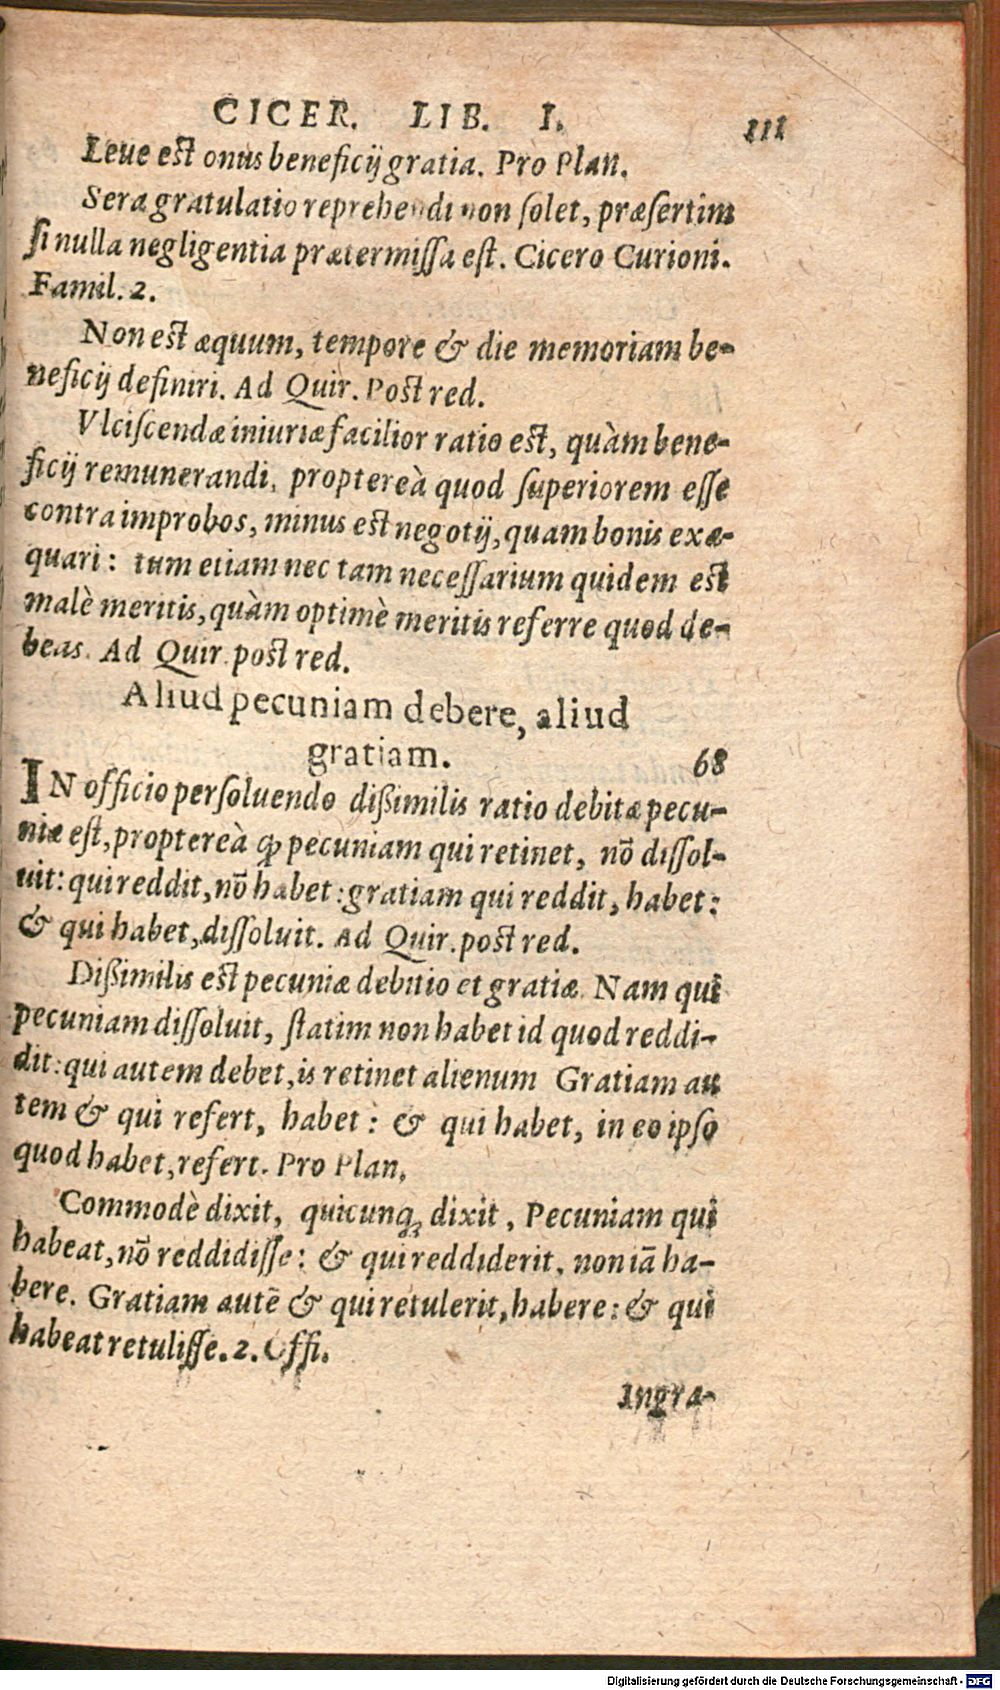 CICER. LIB. I. 111
Leue est onus beneficij gratia. Pro Plan.
Sera gratulatio reprehendi non ſolet, præſertim
ſi nulla negligentia prætermiſſa eſt. Cicero Curioni.
Famil. 2.
Non est æquum, tempore & die memoriam be-
neficij definiri. Ad Quir. Post red.
Vlciſcendæ iniuriæ facilior ratio est, quàm bene-
ficij remunerandi, proptereà quod ſuperiorem eſſe
contra improbos, minus est negotij, quam bonis exæ-
quari: tum etiam nec tam neceſſarium quidem est
malè meritis, quàm optimè meritis referre quod de-
beas. Ad Quir. post red.
Aliud pecuniam debere, aliud
gratiam. 68
IN officio perſoluendo dißimilis ratio debitæ pecu-
niæ eſt, proptereà ꝙ pecuniam qui retinet, nō diſſol-
uit: qui reddit, nō habet: gratiam qui reddit, habet:
& qui habet, diſſoluit. Ad Quir. post red.
Dißimilis est pecuniæ debitio et gratiæ. Nam qui
pecuniam diſſoluit, ſtatim non habet id quod reddi-
dit: qui autem debet, is retinet alienum Gratiam au
tem & qui refert, habet: & qui habet, in eo ipſo
quod habet, refert. Pro Plan.
Commodè dixit, quicunq; dixit, Pecuniam qui
habeat, nō reddidiſſe: & qui reddiderit, non iā ha-
bere. Gratiam autē & qui retulerit, habere: & qui
habeat retuliſſe. 2. Offi.
Ingra-
Digitalisierung gefördert durch die Deutsche Forschungsgemeinschaft - DFG